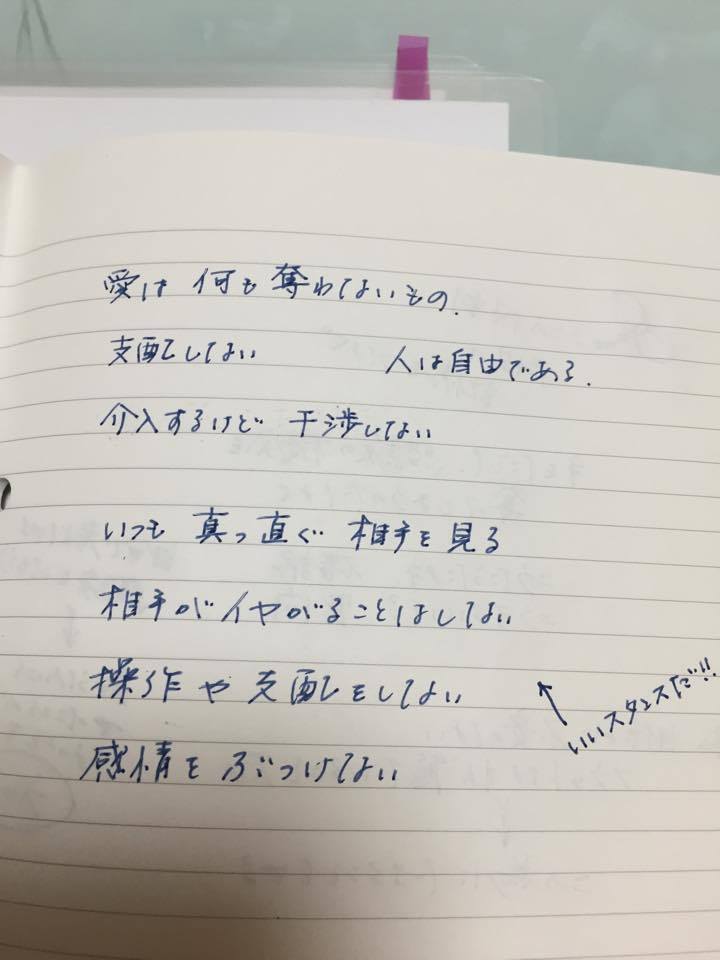 愛は 何も奪わないもの.
支配しない 人は自由である.
介入するけど 干渉しない
いつも 真っ直ぐ 相手を見る
相手がイヤがることはしない
操作や支配をしない
いいスタンスだ!!
感情をぶつけない